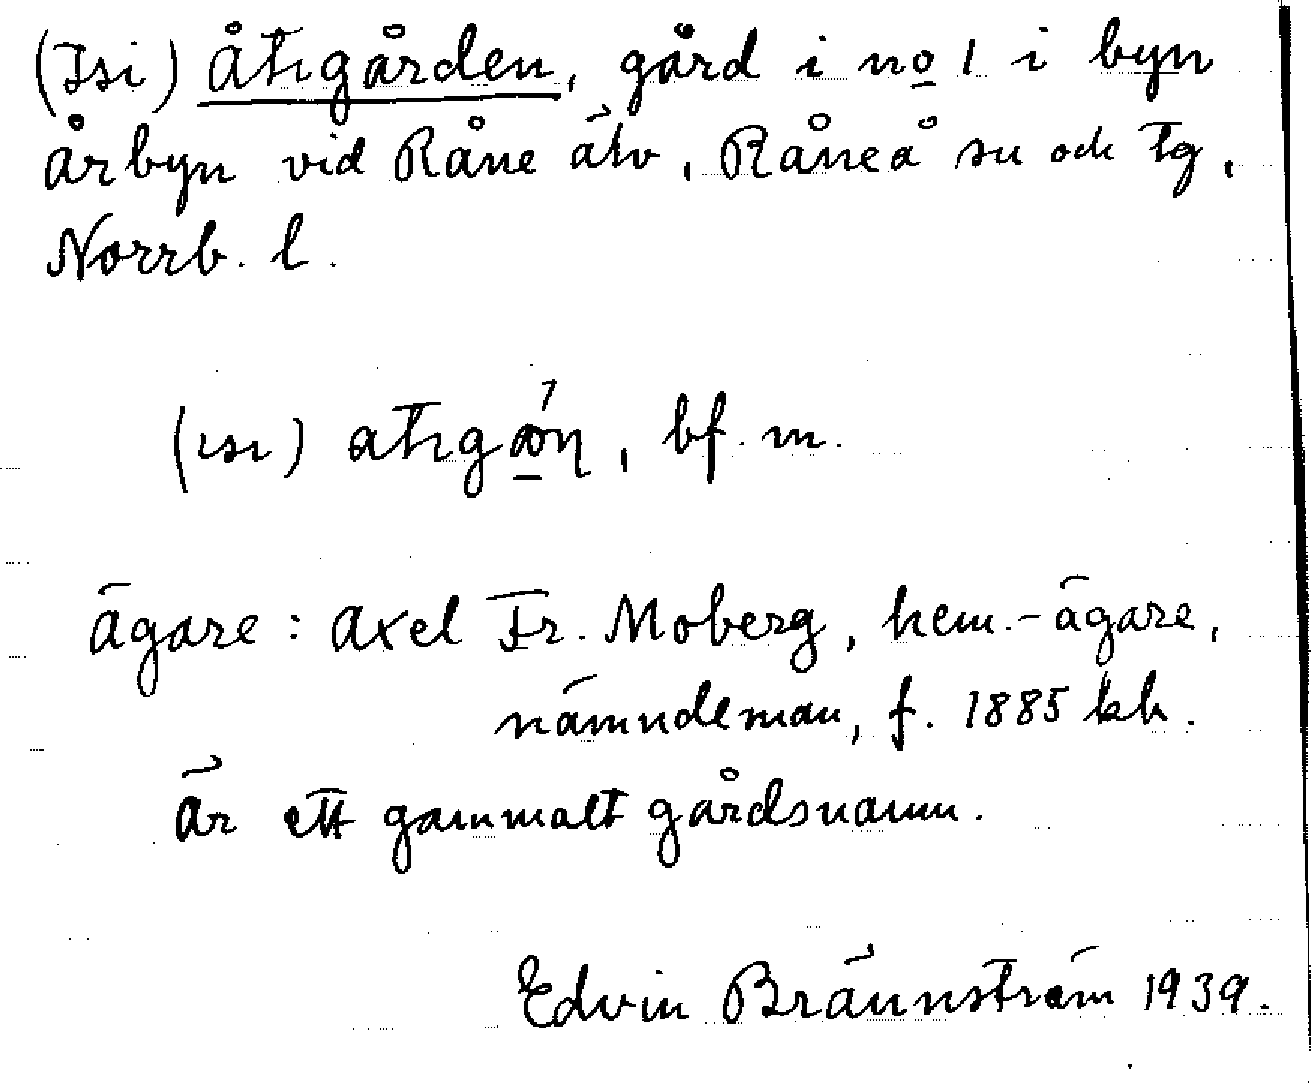 (Isi) Åtigården, gård i no 1 i byn
Årbyn vid Råne älv, Råneå sn och tg,
Norrb. l.
(ısı) atıgɷ́n, bf. m.
Ägare: Axel Fr. Moberg, hem.-ägare,
nämndeman, f. 1885 kb.
Är ett gammalt gårdsnamn.
Edvin Brännström 1939.